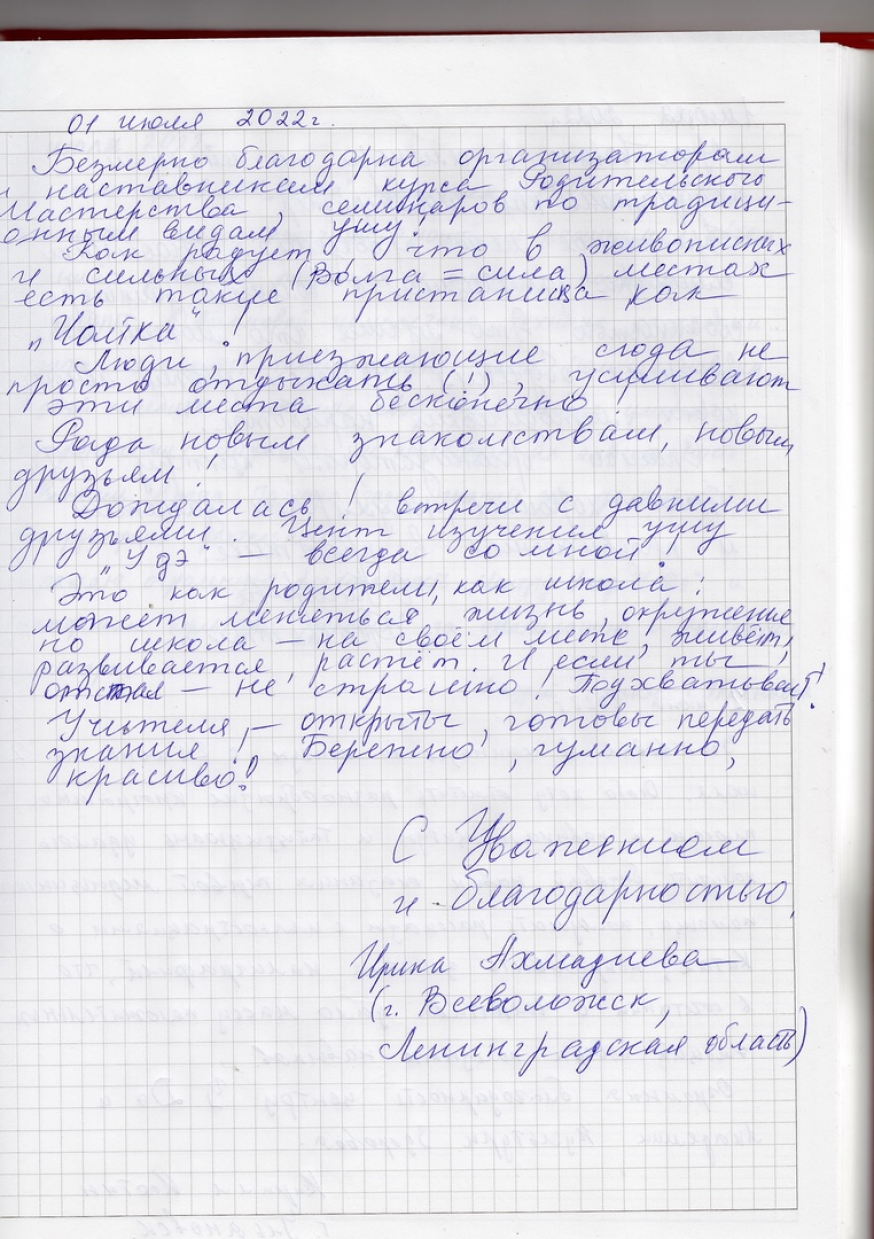 01 июля 2022г.
Безмерно благодарна организаторам
и наставникам курса Родительского
Мастерства, семинаров по традици-
онным видам ушу!
Как радует, что в живописных
и сильных (Волга = сила) местах
есть такие пристанища как
„Чайка"!
Люди, приезжающие сюда не
просто отдыхать (!), усиливают
эти места бесконечно
Рада новым знакомствам, новым
друзьям!
Дождалась! встречи с давними
друзьями. Центр изучения ушу
„У дэ" — всегда со мной!
Это как родители, как школа:
может меняться жизнь, окружение
но школа — на своём месте, живёт,
развивается, растёт. И если ты
отстал — не страшно! Подхватывают!
Учителя, — открыты, готовы передать
знания! Бережно, гуманно,
красиво!
С Уважением
и благодарностью,
Ирина Ахмадиева
(г. Всеволожск,
Ленинградская область)